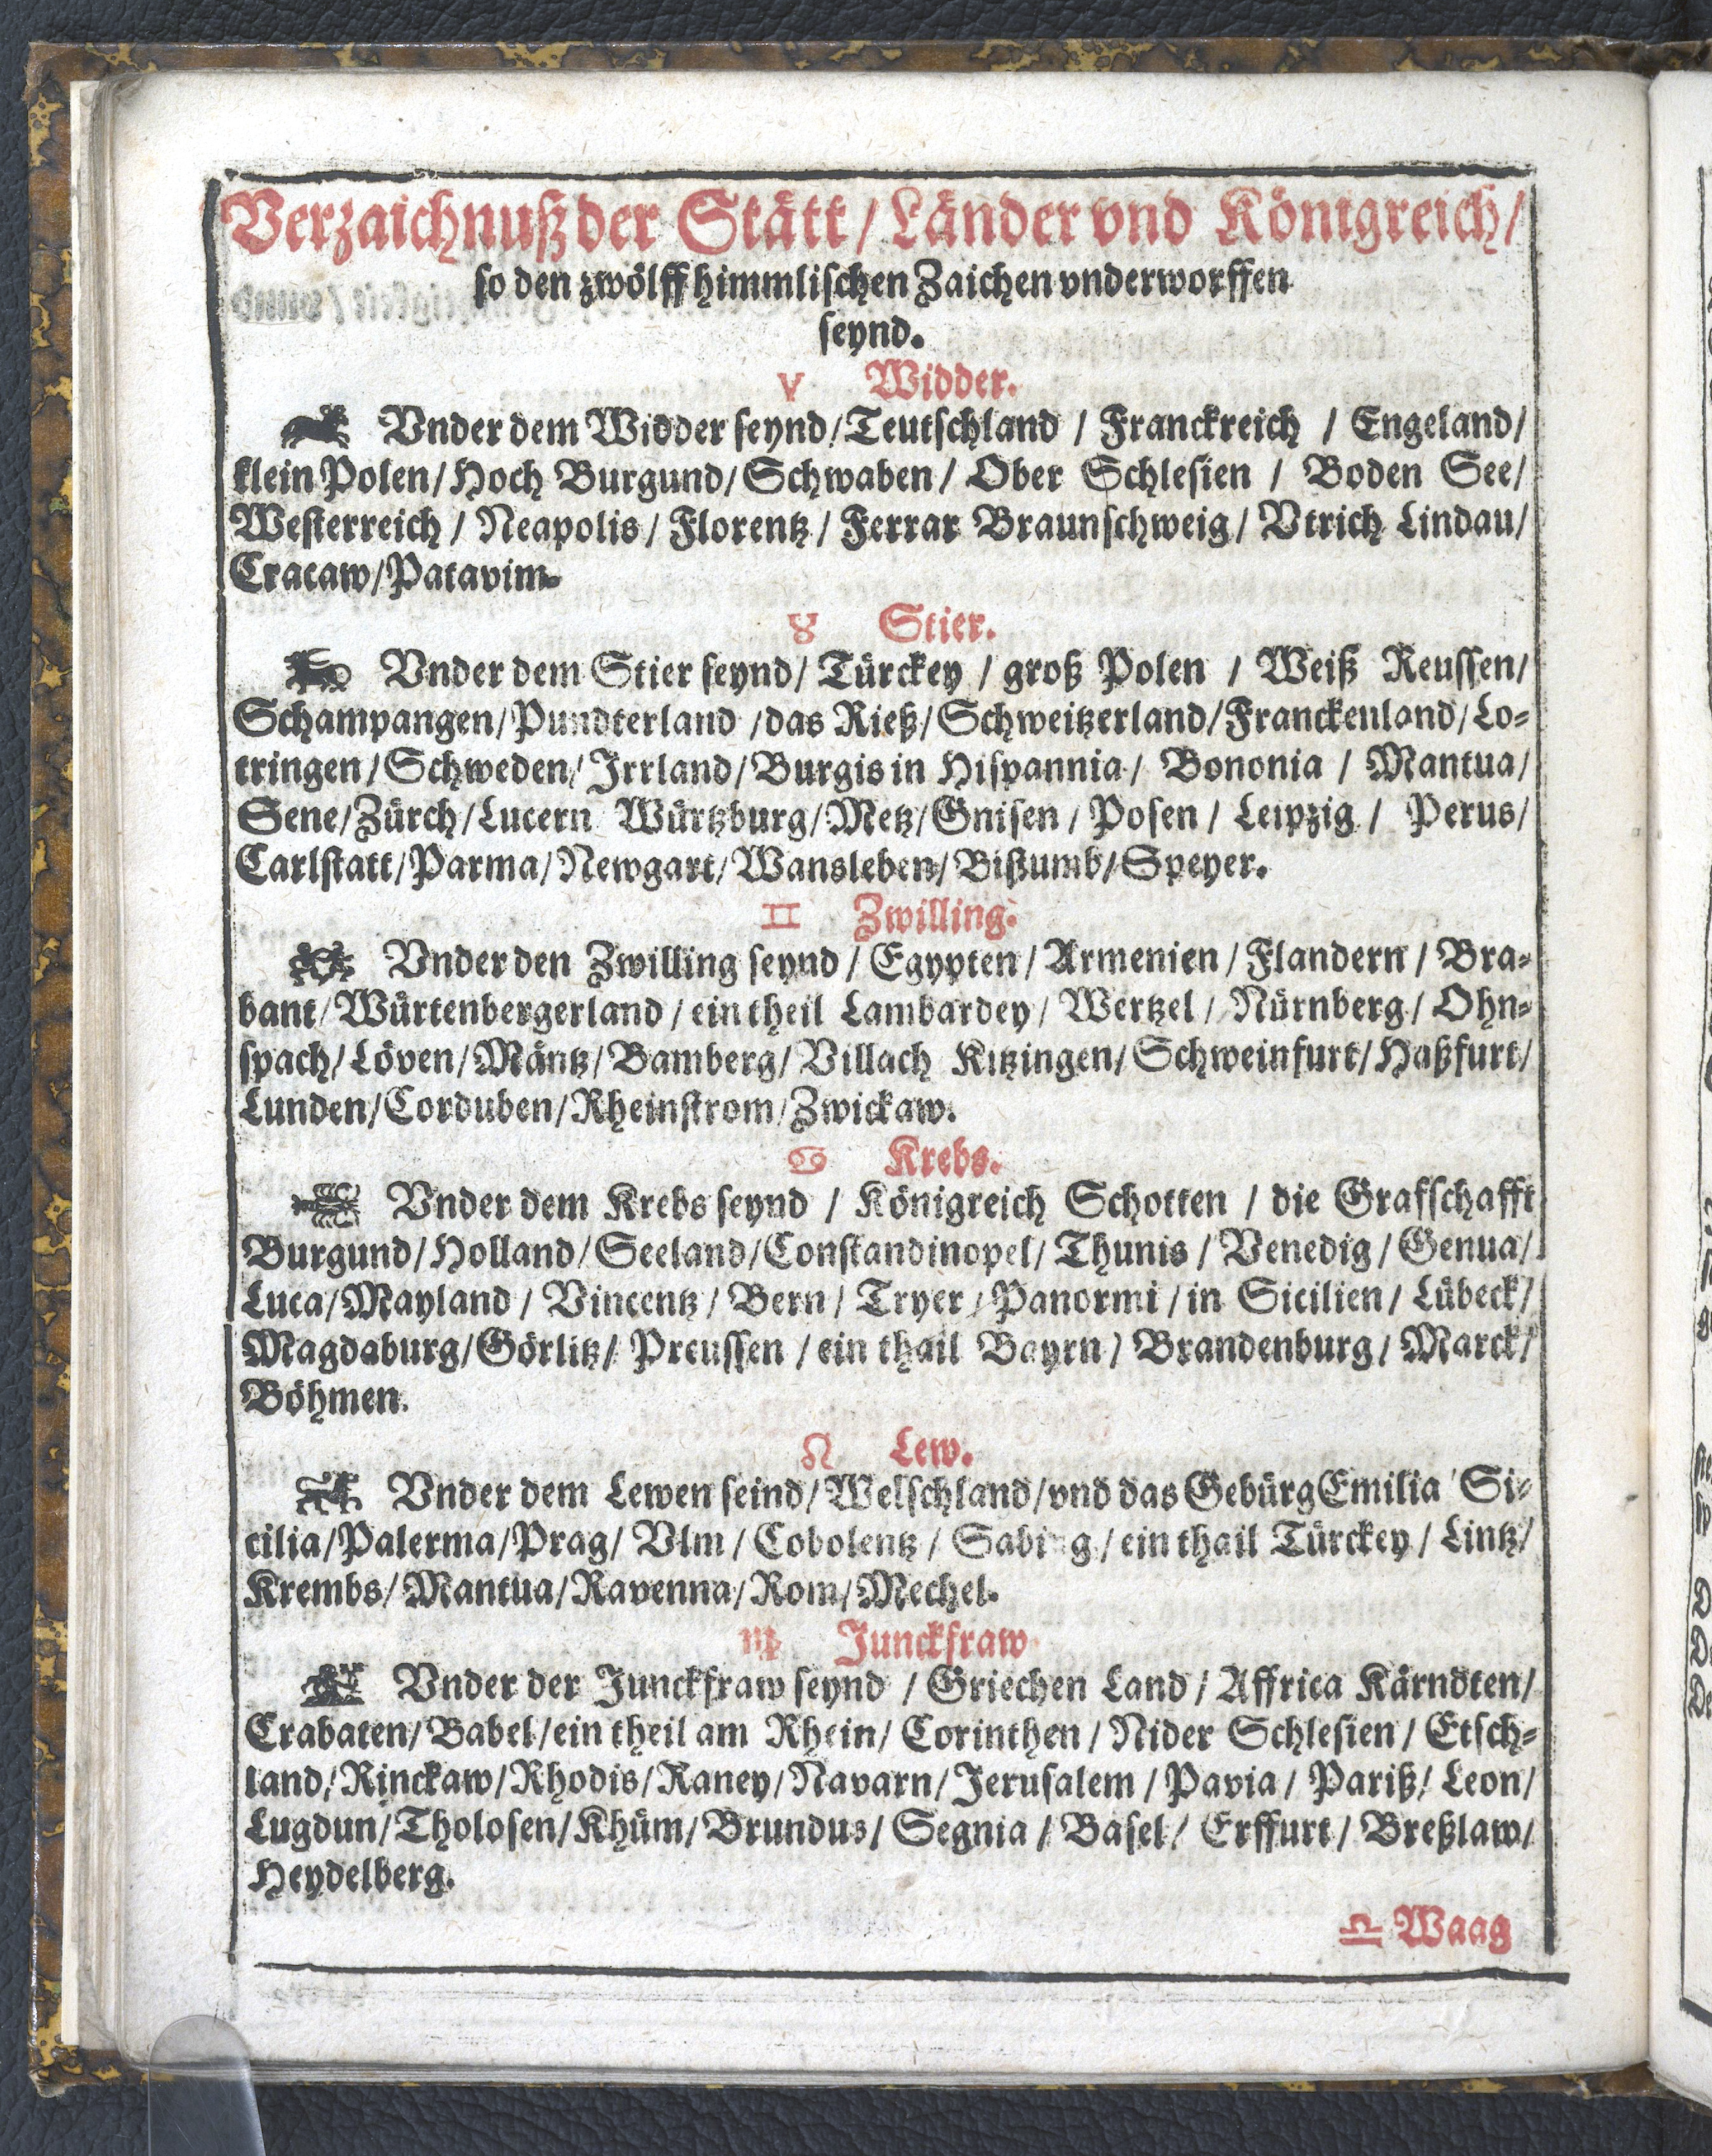 Verzaichnuß der Stätt / Länder vnd Königreich /
so den zwölff himmlischen Zaichen vnderworffen
seynd.
♈ Widder.
Vnder dem Widder seynd / Teutschland / Franckreich / Engeland /
klein Polen / Hoch Burgund / Schwaben / Ober Schlesien / Boden See /
Westerreich / Neapolis / Florentz / Ferrar Braunschweig / Vtrich Lindau /
Cracaw / Patavim.
♉ Stier.
Vnder dem Stier seynd / Türckey / groß Polen / Weiß Reussen /
Schampangen / Pundterland / das Rieß / Schweitzerland / Franckenland / Lo-
tringen / Schweden / Irrland / Burgis in Hispannia / Bononia / Mantua /
Sene / Zürch / Lucern Würtzburg / Metz / Gnisen / Posen / Leipzig / Perus /
Carlstatt / Parma / Newgart / Wansleben / Bistumb / Speyer.
♊ Zwilling.
Vnder den Zwilling seynd / Egypten / Armenien / Flandern / Bra-
bant / Würtenbergerland / ein theil Lambardey / Wertzel / Nürnberg / Ohn-
spach / Löven / Mäntz / Bamberg / Villach Kitzingen / Schweinfurt / Haßfurt /
Lunden / Corduben / Rheinstrom / Zwickaw.
♋ Krebs.
Vnder dem Krebs seynd / Königreich Schotten / die Grafschafft
Burgund / Holland / Seeland / Constandinopel / Thunis / Venedig / Genua /
Luca / Mayland / Vincentz / Bern / Tryer / Panormi / in Sicilien / Lübeck /
Magdaburg / Görlitz / Preussen / ein thail Bayrn / Brandenburg / Marck /
Böhmen.
♌ Lew.
Vnder dem Lewen seind / Welschland / vnd das Gebürg Emilia / Si-
cilia / Palerma / Prag / Vlm / Cobolentz / ein thail Türckey / Lintz /
Krembs / Mantua / Ravenna / Rom / Mechel.
♍ Junckfraw
Vnder der Junckfraw seynd / Griechen Land / Affrica Kärndten /
Crabaten / Babel / ein theil am Rhein / Corinthen / Nider Schlesien / Etsch-
land / Rinckaw / Rhodis / Raney / Navarn / Jerusalem / Pavia / Pariß / Leon /
Lugdun / Tholosen / Khüm / Brundus / Segnia / Basel / Erffurt / Breßlaw /
Heydelberg.
♎ Waag